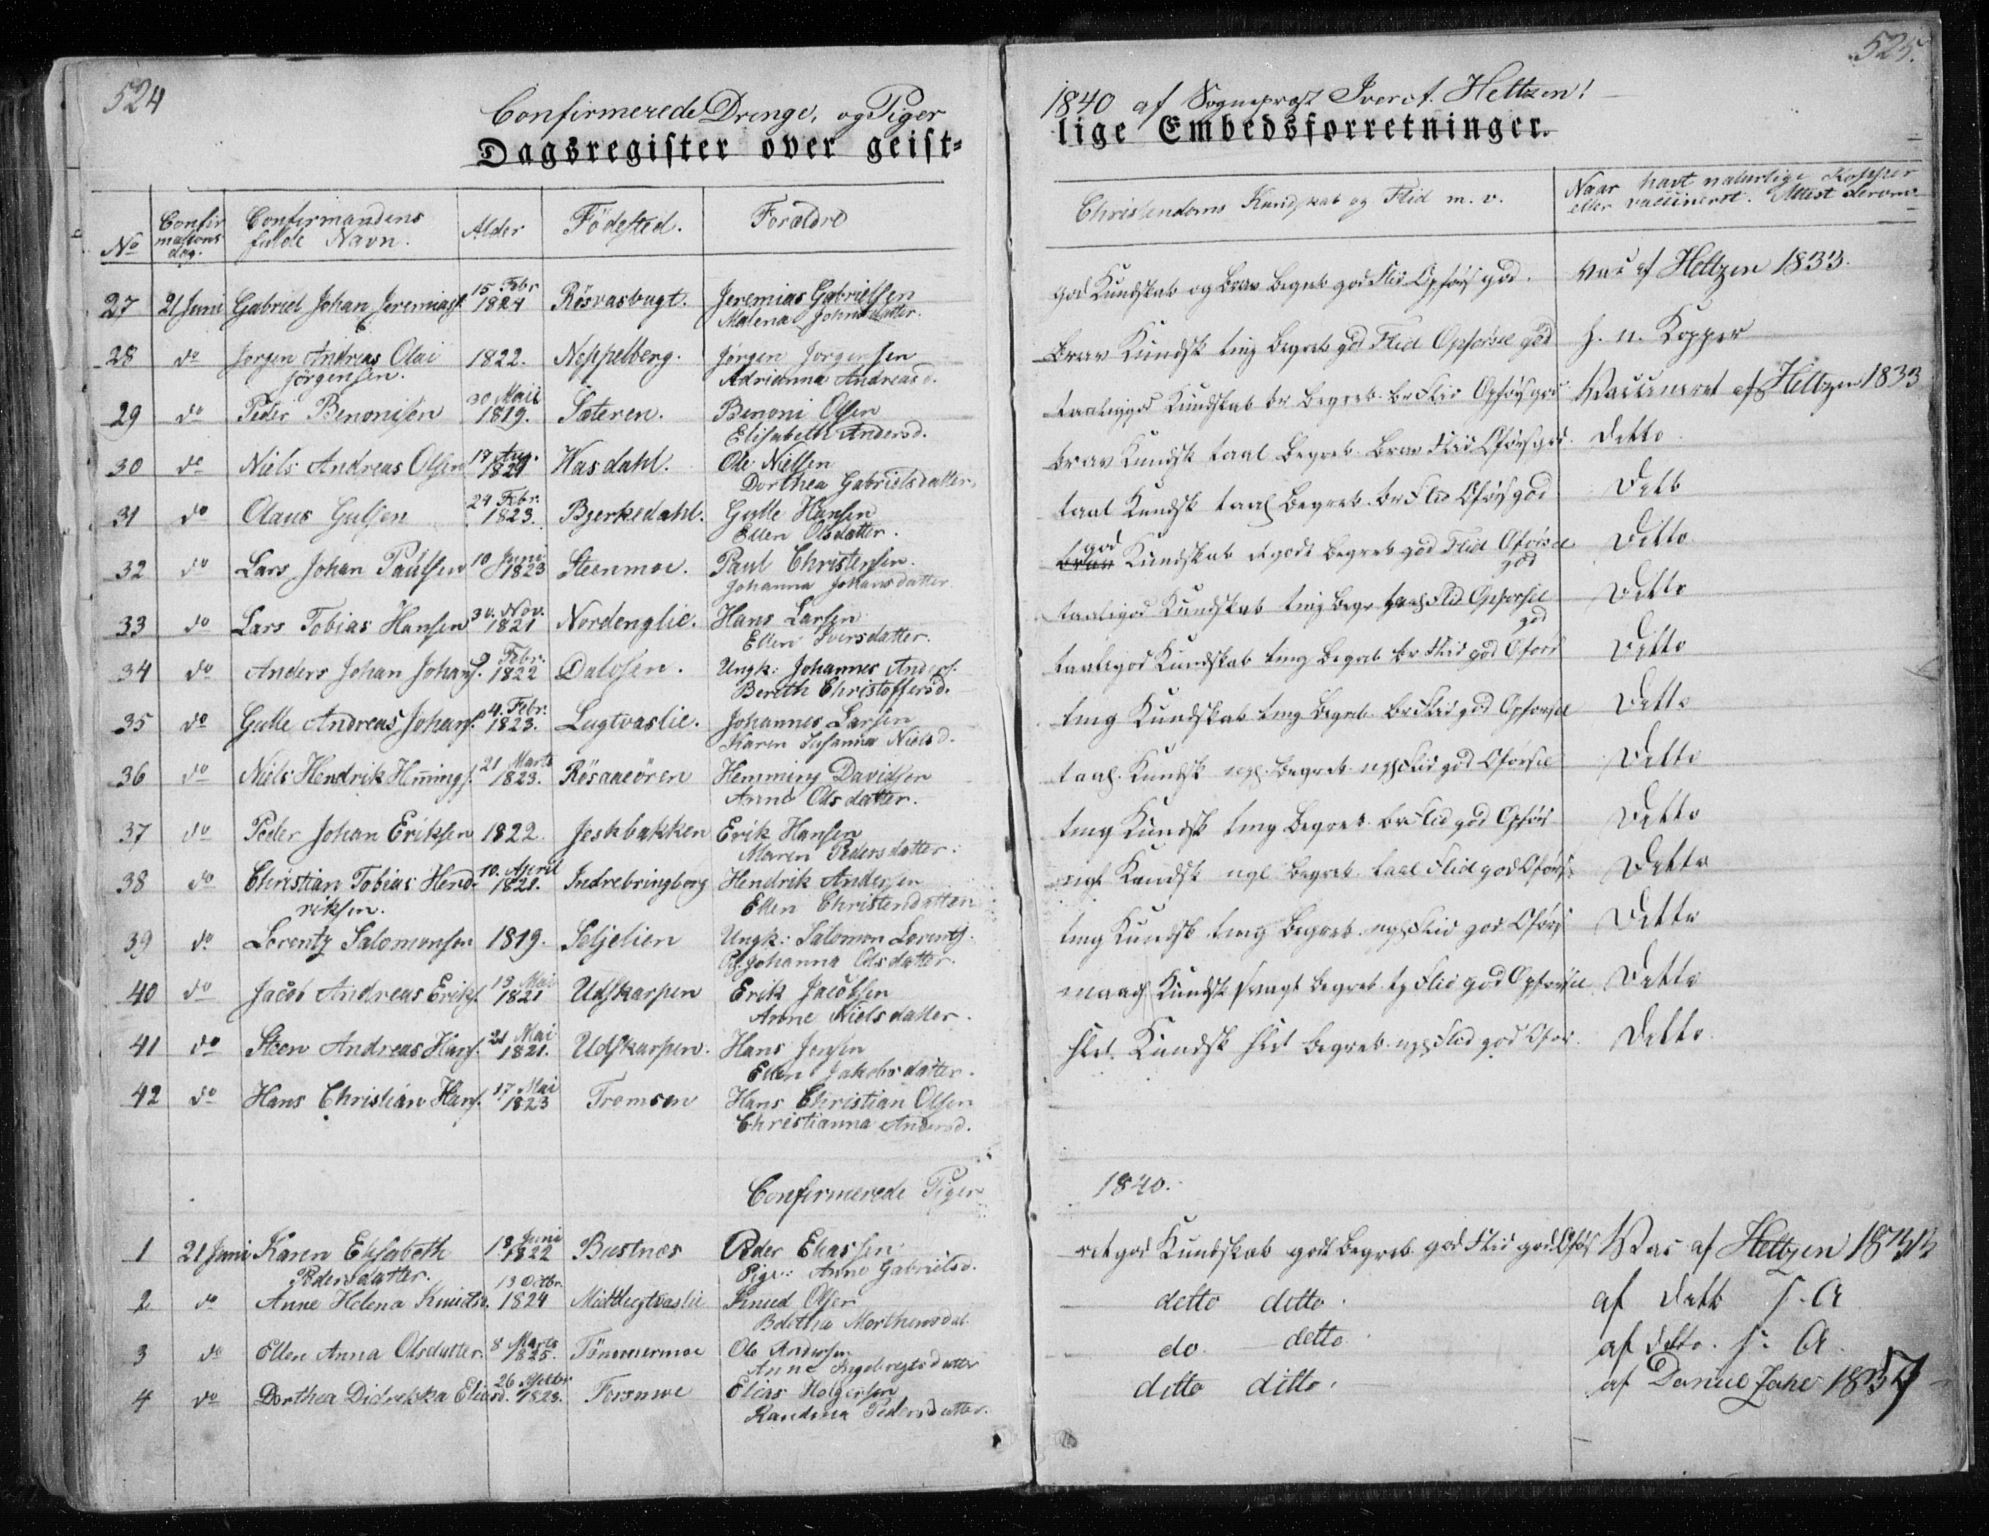 524
525.
Confirmerede Drenge, og Piger
1840 af Sogneprest Heltzen!
Dagsregister over geist=
lige Embedsforretninger.
No
Confirmations dag.
Confirmandens fulde Navn.
Alder
Födested.
Forældre
Christendoms Kundskab og Flid m. v.
Naar havt naturlige Kopper
eller vaccineret. Attest derom.
27 21 Juni Gabriel Johan Jeremias. 15 Febr 1824 Rösvasbugt. Jeremias Gabrielsen
Malena Johnsdatter.
god Kundskab og brav Begreb god Flid Opførs god. vac af Heltzen 1833.
28 do Jørgen Andreas Olai 1822. Neppelberg. Jørgen Jørgensen
Jörgensen. Adrianna Andreasd.
brav Kundsk tmg Begreb god Flid Opførsel god h. n. Kopper
29 do Peder Benonisen 30 Maii 1819. Sæteren. Benoni Olsen
Elisabeth Andersd.
taaleligod Kundskab br Begreb br Flid Opførs god Vaccineret af Heltzen 1833
30 do Niels Andreas Olsen 19 Aug. 1821 Hasdahl. Ole Nielsen
Dorthea Gabrielsdatter.
brav Kundsk taal Begreb brav Flid Opførs god. Detto
31 do Olaus Gulsen 24 Febr. 1823. Bjerkedahl. Gulle Hansen
Ellen Olsdatter.
taal Kundsk taal Begreb br Flid Oførs god Detto
32 do Lars Johan Paulsen 10 Juni 1823 Steenmoe. Paul Christensen.
Johanna Johansdatter
god
brav Kundskab et godt Begreb god Flid Oførsel
god Ditto
33 do Lars Tobias Hansen 30. Nov. 1821 Nordenglie. Hans Larsen
Ellen Iversdatter.
taaleligod Kundskab tmg Begr taal Flid Opførsel
god Ditto
34 do Anders Johan Johans. 9 Febr. 1822 Dalosen. Ungk: Johannes Anders.
Bereth Christoffersd.
taaleligod Kundskab tmg Begreb br Flid god Oførs Ditto
35 do Gulle Andreas Johans. 4. Febr. 1823. Lugtvaslie. Johannes Larsen
Karen Susanna Nielsd.
tmg Kundskab tmg Begreb br Flid god Opførsel Detto
36 do Niels Hendrik Hemings. 21 Marts 1823. Rösaaeören Hemming Davidsen
Anne Olsdatter.
taal. Kundsk ngl. Begreb ngl Flid god Oførsel Detto
37 do Peder Johan Eriksen 1822. Jeshbakken Erik Hansen
Maren Pedersdatter.
tmg Kundsk tmg Begreb br Flid god Opførs Ditto
38 do Christian Tobias Hend- 10. April 1821. Indrebringborg Hendrik Andersen
riksen. Ellen Christensdatter
ngl Kundsk ngl Begreb taal Flid god Oførs Detto
39 do Lorentz Salomonsen 1819. Seljelien Ungk: Salomon Lorents.
Johanna Olsdatter.
tmg Kundsk tmg Begreb ngl Flid god Oførs Detto
40 do Jacob Andreas Eriks. 13 Mai 1821 Udskarpen Erik Jacobsen
Anne Nielsdatter.
maad. Kundsk svagt Begreb Flid god Opførsel Detto
41 do Steen Andreas Hans. 21 Mai 1821. Udskarpen. Hans Jensen
Ellen Jakobsdatter.
slet. Kundsk slet Begreb ngl Flid god Ofør Detto.
42 do Hans Christian Hans. 17 Mai 1823 Tromsen Hans Christian Olsen
Christianna Andersd.
Confirmerede Piger
1840.
1 21 Juni Karen Elisabeth 18 Juni 1822 Bustnæs Peder Eliassen
Pedersdatter. Pige: Anne Gabrielsd.
ret god Kundskab godt Begreb god Flid god Oførs Vac af Heltzen
2 do Anne Helena Knudts. 13 Octbr. 1824 Midtlugtvaslie Knud Olsen
Morthensdat
detto ditto. af Detto s. A
3 do Ellen Anna Olsdatter. 8 Marts 1825. Tömmermoe Ole Andersen
Anne Ingebregtsdatter
do. detto af detto. s. A.
4 do Dorthea Didrikka Eliasd. 26 1823. Forsmoe Elias Holgersen
Randina Pedersdatter.
ditto ditto. af Daniel 1837